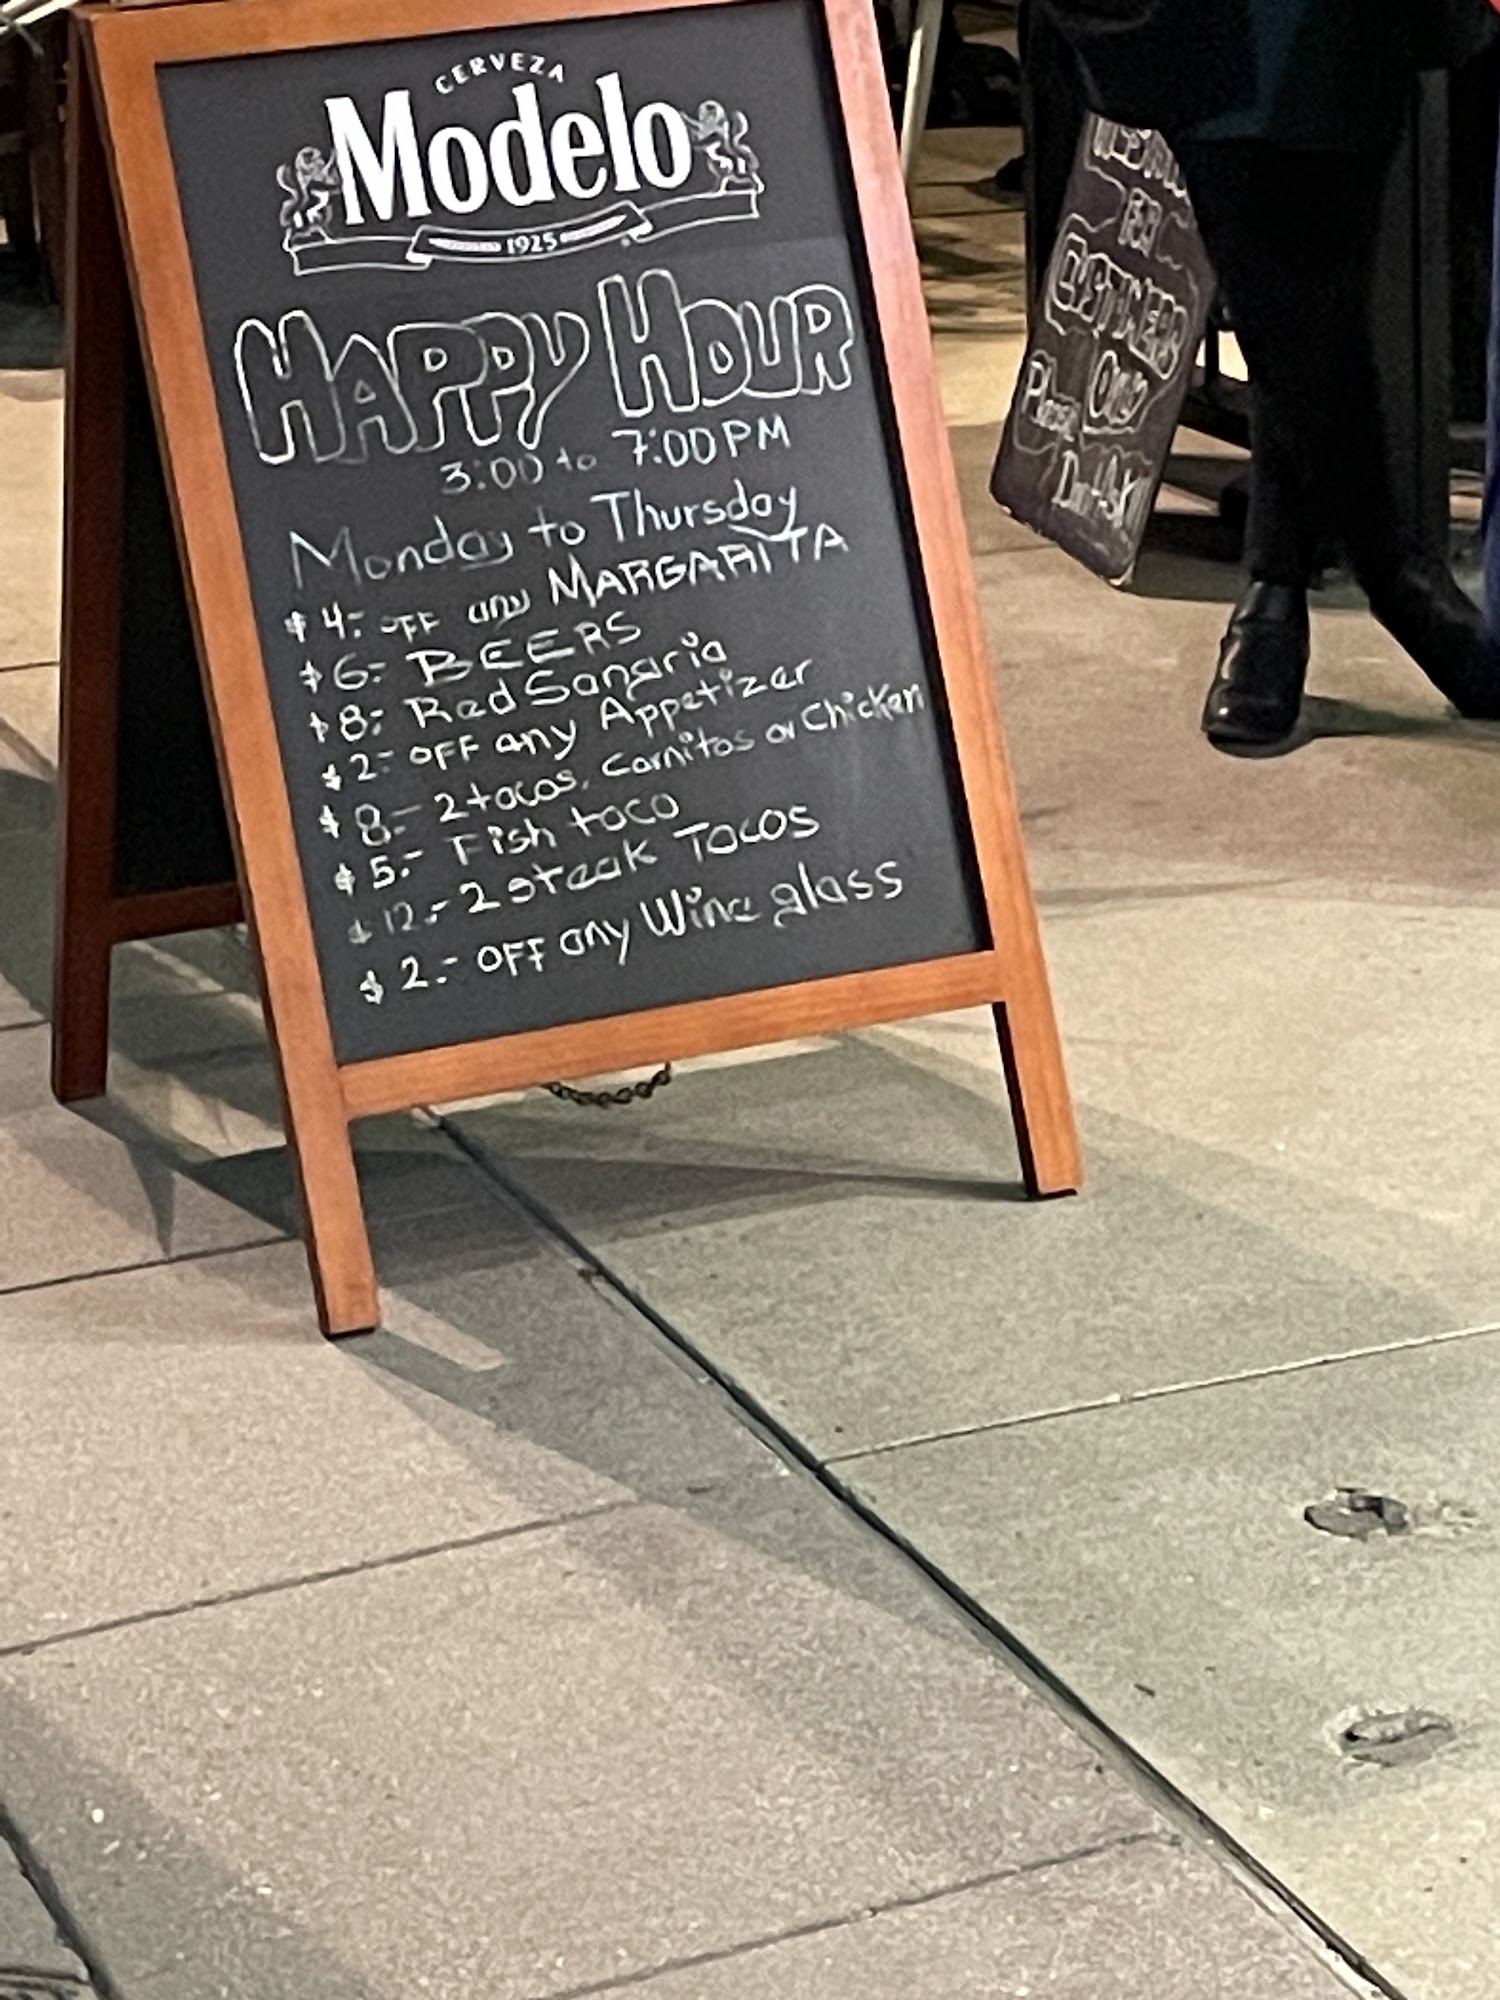 CERVEZA
Modelo
1925
HAPPY HOUR
3:00 to 7:00 PM
Monday to Thursday
$4.- OFF any MARGARITA
$6.- BEERS
$8.- Red Sangria
$2.- OFF any Appetizer
$8.- 2 tacos, Carnitas or Chicken
$5.- Fish taco
$12.- 2 steak TACOS
$2.- OFF any Wine glass
FOR
CUSTOMERS
ONLY
Please
Don't ASK